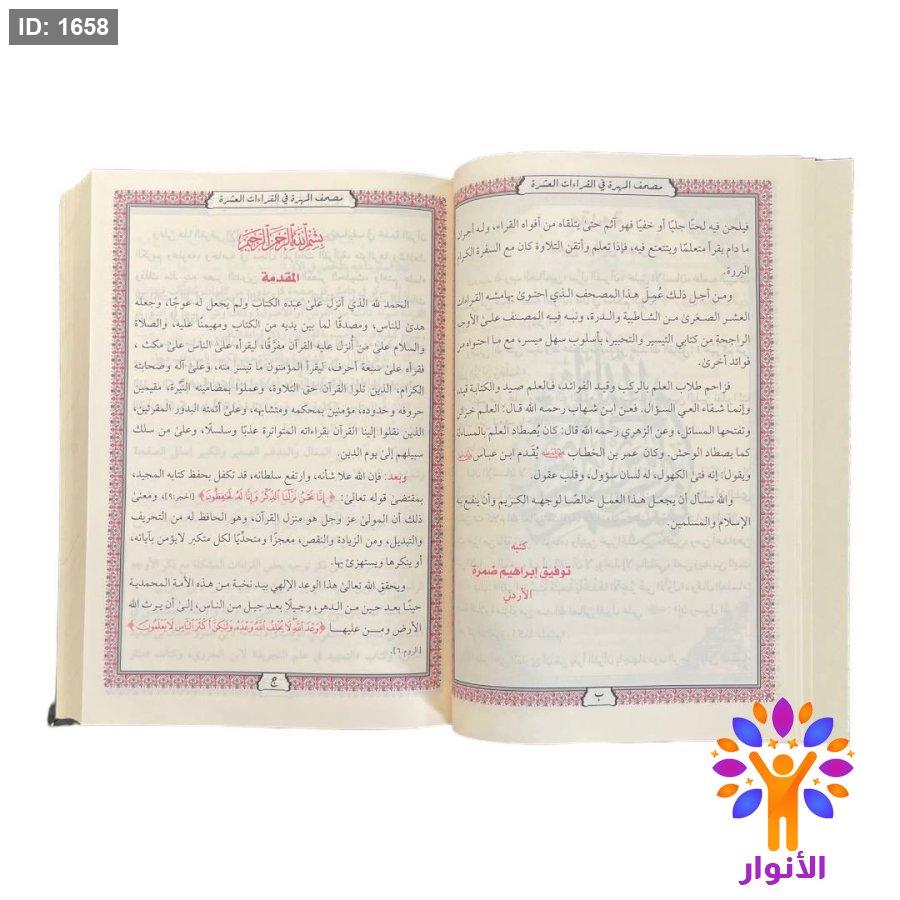 ID: 1658
مصحف المهرة في القراءات العشرة
فيلحن فيه لحنًا جليًا أو خفيًا فهو آثم حتىٰ يتلقاه من أفواه القراء، وله أجران
ما دام يقرأ متعلمًا ويتتعتع فيه، فإذا تعلم وأتقن التلاوة كان مع السفرة الكرام
البررة.
ومن أجل ذلك عُمِلَ هذا المصحف الذي احتوىٰ بهامشه القراءات
العشر الصغرىٰ من الشاطبية والدرة، ونبه فيه المصنف علىٰ الأوجه
الراجحة من كتابي التيسير والتحبير، بأسلوب سهل ميسر، مع ما احتواه من
فوائد أخرىٰ.
فزاحم طلاب العلم بالركب وقيد الفوائد، فالعلم صيد والكتابة قيد
وإنما شفاء العي السؤال. فعن ابن شهاب رحمه الله قال: العلم خزائن
وتفتحها المسائل، وعن الزهري رحمه الله قال: كان يُصطاد العلم بالمساءلة
كما يصطاد الوحش. وكان عمر بن الخطاب يُقدم ابن عباس
ويقول: إنه فتىٰ الكهول، له لسان سؤول، وقلب عقول.
والله نسأل أن يجعل هذا العمل خالصًا لوجهه الكريم وأن ينفع به
الإسلام والمسلمين.
كتبه
توفيق إبراهيم ضمرة
الأردن
ب
مصحف المهرة في القراءات العشرة
بسم الله الرحمن الرحيم
المقدمة
الحمد لله الذي أنزل علىٰ عبده الكتاب ولم يجعل له عوجًا، وجعله
هدىً للناس، ومصدقًا لما بين يديه من الكتاب ومهيمنًا عليه، والصلاة
والسلام علىٰ من أُنزل عليه القرآن مفرَّقًا، ليقرأه علىٰ الناس علىٰ مكث ،
فقرأه علىٰ سبعة أحرف، ليقرأ المؤمنون ما تيسر منه، وعلىٰ آله وصحابته
الكرام، الذين تلوا القرآن حق التلاوة، وعملوا بمضامينه النيِّرة، مقيمين
حروفه وحدوده، مؤمنين بمحكمه ومتشابهه، وعلىٰ أئمته البدور المقرئين،
الذين نقلوا إلينا القرآن بقراءاته المتواترة عذبًا وسلسلًا، وعلىٰ من سلك
سبيلهم إلىٰ يوم الدين.
وبعد: فإن الله علا شأنه، وارتفع سلطانه، قد تكفل بحفظ كتابه المجيد،
بمقتضىٰ قوله تعالىٰ: ﴿إِنَّا نَحْنُ نَزَّلْنَا الذِّكْرَ وَإِنَّا لَهُ لَحَافِظُونَ﴾ [الحجر:٩]، ومعنىٰ
ذلك أن المولىٰ عز وجل هو منزل القرآن، وهو الحافظ له من التحريف
والتبديل، ومن الزيادة والنقص، معجزًا ومتحدّيًا لكل متكبر لايؤمن بآياته،
أو ينكرها ويستهزئ بها.
ويحقق الله تعالىٰ هذا الوعد الإلهي بيد نخبة من هذه الأمة المحمدية
حينًا بعد حين من الدهر، وجيلًا بعد جيل من الناس، إلىٰ أن يرث الله
الأرض ومن عليها ﴿وَعْدَ اللَّهِ لَا يُخْلِفُ اللَّهُ وَعْدَهُ وَلَكِنَّ أَكْثَرَ النَّاسِ لَا يَعْلَمُونَ﴾
[الروم:٦].
ج
الأنوار